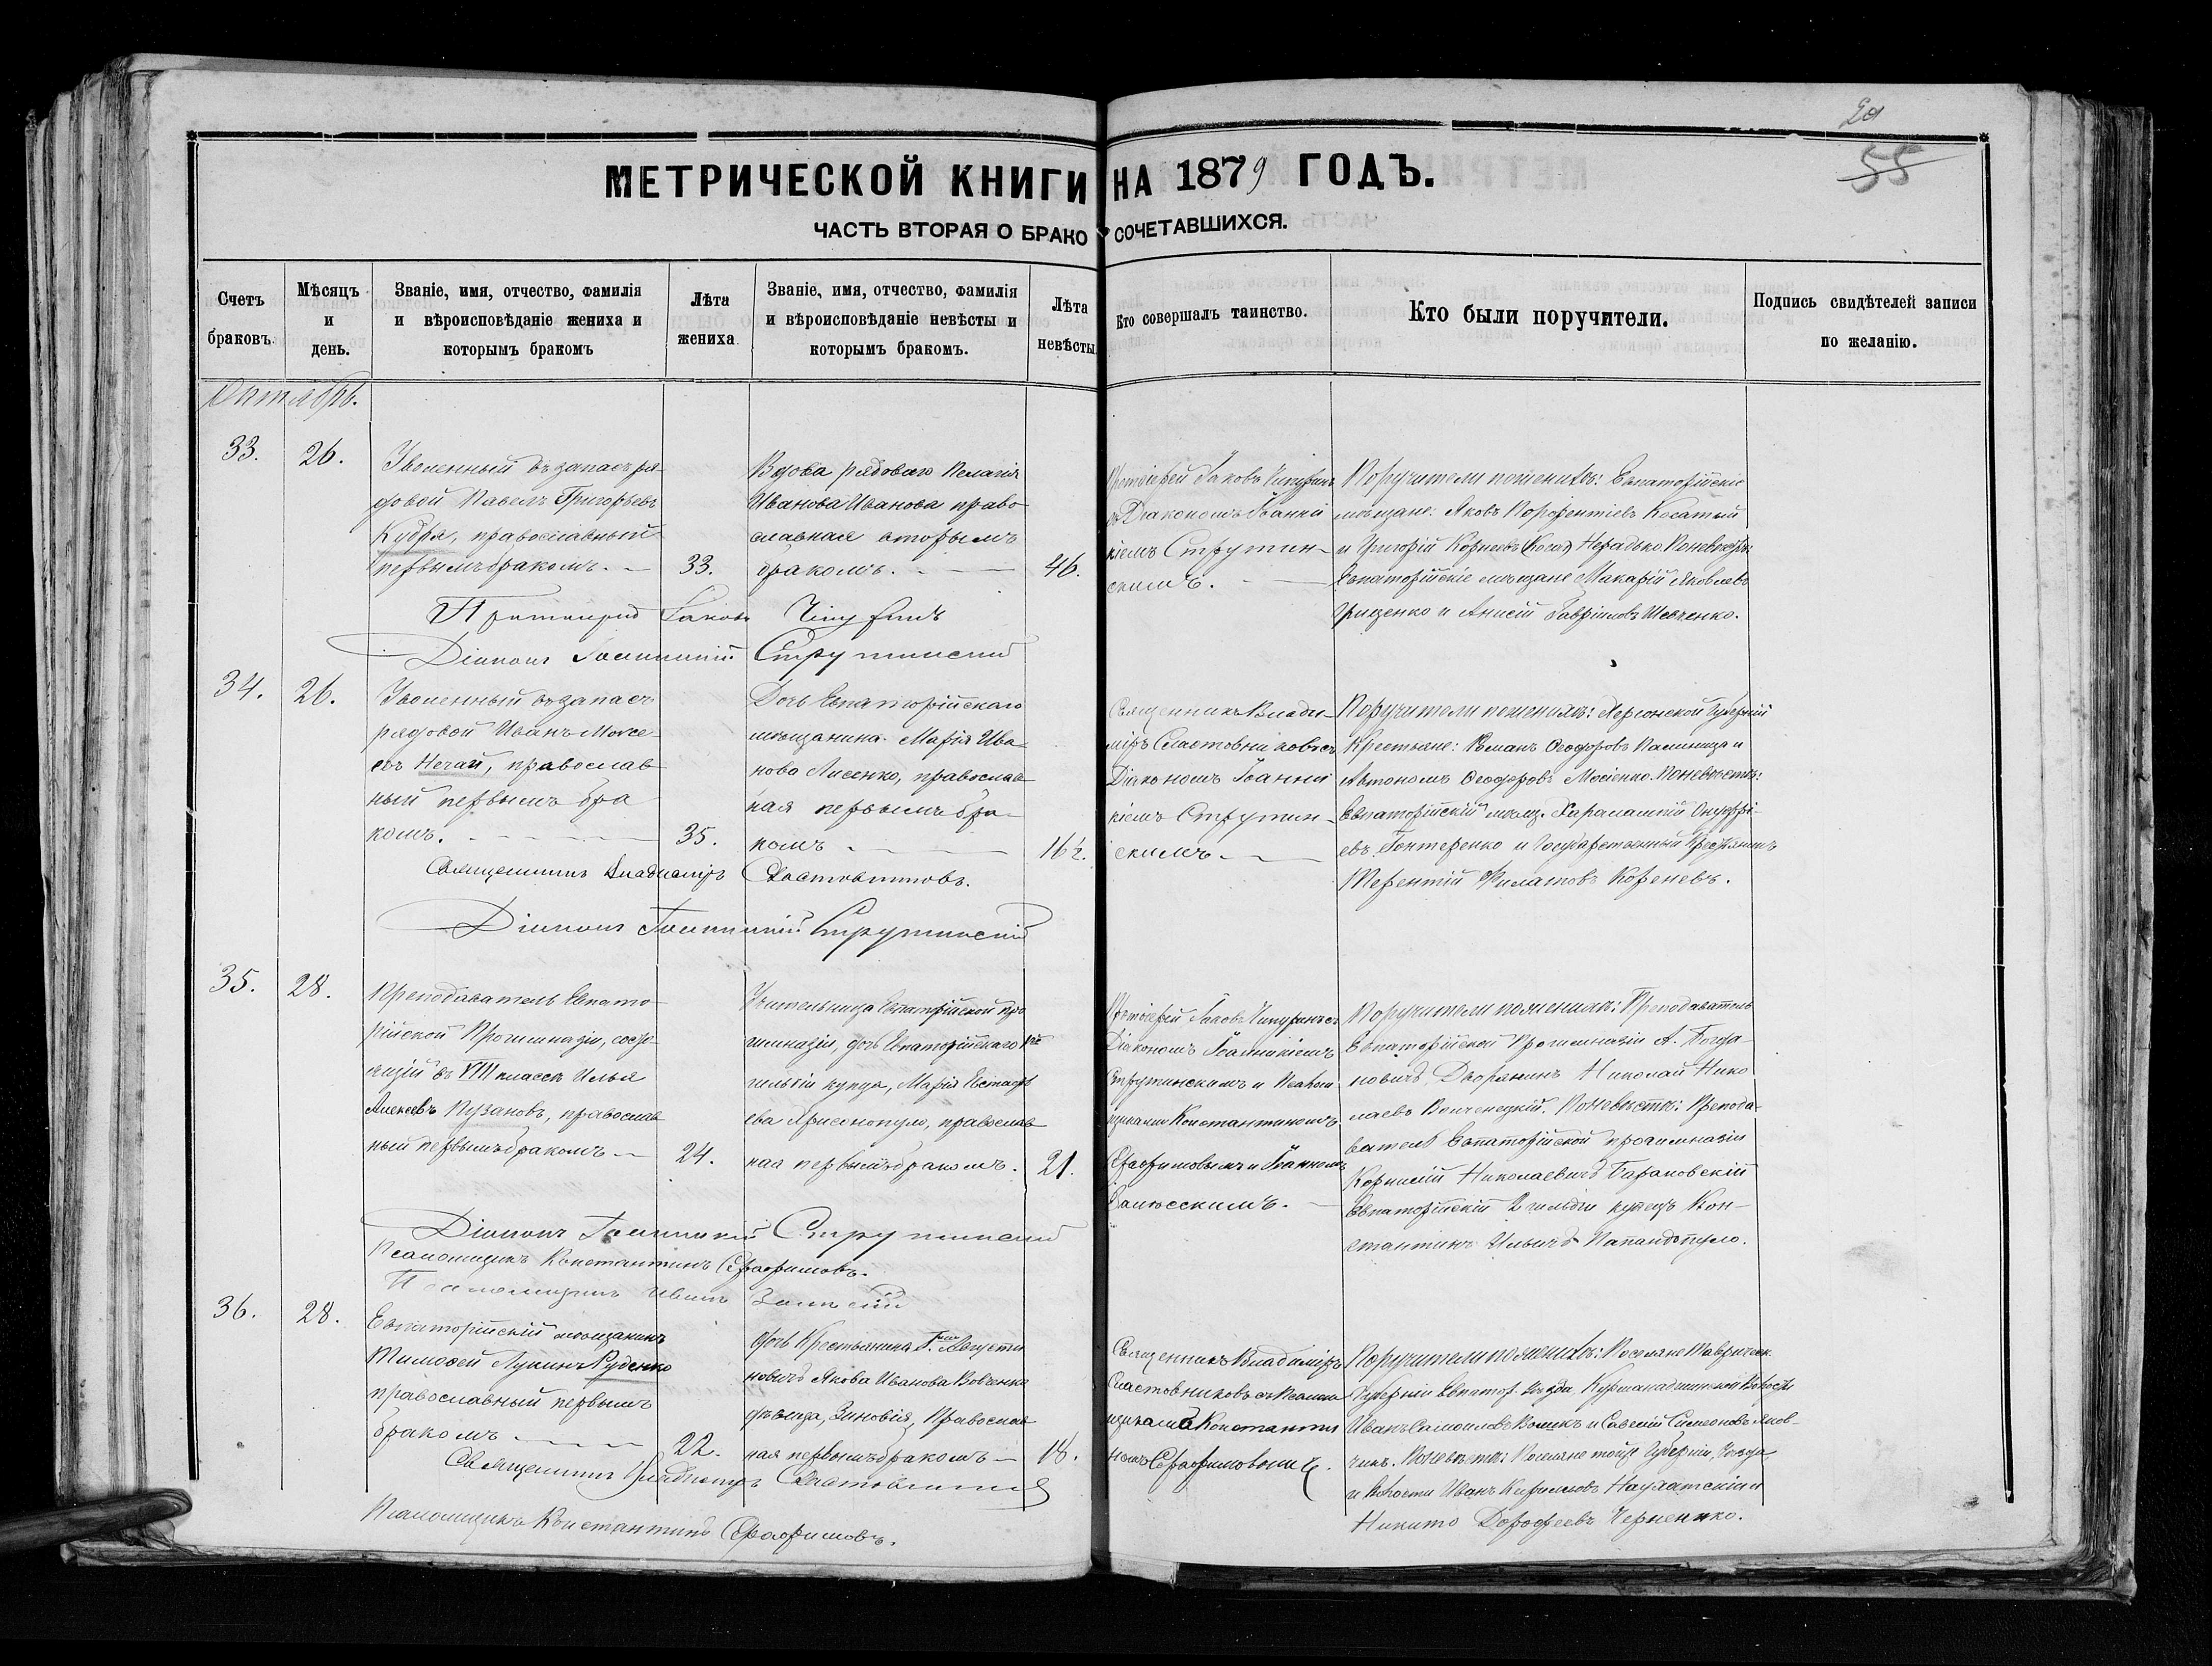 55
МЕТРИЧЕСКОЙ КНИГИ НА 1879 ГОДЪ.
ЧАСТЬ ВТОРАЯ О БРАКОСОЧЕТАВШИХСЯ.
Счетъ браковъ.
Мѣсяцъ и день.
Званіе, имя, отчество, фамилія
и вѣроисповѣданіе жениха и
которымъ бракомъ
Лѣта
жениха
Званіе, имя, отчество, фамилія
и вѣроисповѣданіе невѣсты и
которымъ бракомъ.
Лѣта
невѣсты
Кто совершалъ таинство.
Кто были поручители.
Подпись свидѣтелей записи
по желанію.
Октябрь.
33.
26.
Уволенный въ запасъ ря-
довой Павелъ Григорьевъ
Кудря, православный
первымъ бракомъ.
33.
Вдова рядоваго Пелагія
Иванова Иванова право
славная вторымъ
бракомъ.
46.
Протоіерей Іаковъ Чепуринъ
съ Діакономъ Іоанни
кіемъ Струтин-
скимъ.
Поручители по женихѣ: Евпаторійскіе
мѣщане: Яковъ Порфентіевъ Косатый
и Григорій Корнеевъ Нерадько. По невѣстѣ:
Евпаторійскіе мѣщане Макарій Яковлевъ
Гриценко и Анисій Гавріиловъ Шевченко.
Протоіерей Іаковъ Чепуринъ
Діаконъ Іоанникій Струтинскій
34.
26.
Уволенный въ запасъ
рядовой Иванъ Моисе-
евъ Нечай, православ
ный первымъ бра
комъ.
35.
Дочь Евпаторійскаго
мѣщанина Марія Ива-
нова Лисенко, православ
ная первымъ бра-
комъ
16½.
Священникъ Влади-
міръ Сластовниковъ съ
Діакономъ Іоанни
кіемъ Струтин-
скимъ.
Поручители по женихѣ: Херсонской Губерніи
Крестьяне: Романъ Ѳеодоровъ Паляница и
Автономъ Ѳеодоровъ Мосіенко. По невѣстѣ:
Евпаторійскій мѣщ. Харалампій Онуфрі-
евъ Гонтеренко и Государственный Крестьянинъ
Терентій Филатовъ Кореневъ.
Священникъ Владиміръ Сластовниковъ.
Діаконъ Іоанникій Струтинскій
35.
28.
Преподаватель Евпато-
рійской Прогимназіи, состо-
ящій въ VIII классѣ Илья
Алексеевъ Пузановъ, православ
ный первымъ бракомъ
24.
Учительница Евпаторійской про
гимназіи, дочь Евпаторійскаго 1й
гильдіи купца, Марія Евстафі
ева православ
ная первымъ бракомъ.
21.
Протоіерей Іаковъ Чепуринъ съ
Діакономъ Іоанникіемъ
Струтинскимъ и Псалом
щиками Константиномъ
Серафимовымъ и Іоанномъ
Поручители по женихѣ: Преподаватель
Евпаторійской Прогимназіи А. Богда-
новичъ, Дворянинъ Николай Нико
лаевъ Войченецкій. По невѣстѣ: Препода-
ватель Евпаторійской прогимназіи
Корнилій Николаевичъ Барановскій
Евпаторійскій 2 гильдіи купецъ Кон-
стантинъ Ильичъ Пападопуло.
Діаконъ Іоанникій Струтинскій
Псаломщикъ Константинъ Серафимовъ.
Псаломщикъ Иванъ
36.
28.
Евпаторійскій мѣщанинъ
Тимоѳей Лукинъ Руденко
православный первымъ
бракомъ
22.
дочь Крестьянина Гна Августи
новича Якова Иванова Вовченка
дѣвица, Зиновія, Православ
ная первымъ бракомъ
18.
Священникъ Владиміръ
Сластовниковъ съ Псалом
щикомъ Константи
номъ Серафимовымъ.
Поручители по женихѣ: Поселяне Таврическ.
Губерніи Евпатор. Уѣзда, Курманаджинской Волости
Иванъ Самоиловъ Воликъ и Савелій Симеоновъ
По невѣстѣ: Поселяне той же Губерніи, Уѣзда,
и Волости Иванъ Кириловъ и
Никита Дорофеевъ Черненко.
Священникъ Владиміръ Сластовниковъ
Псаломщикъ Константинъ Серафимовъ.